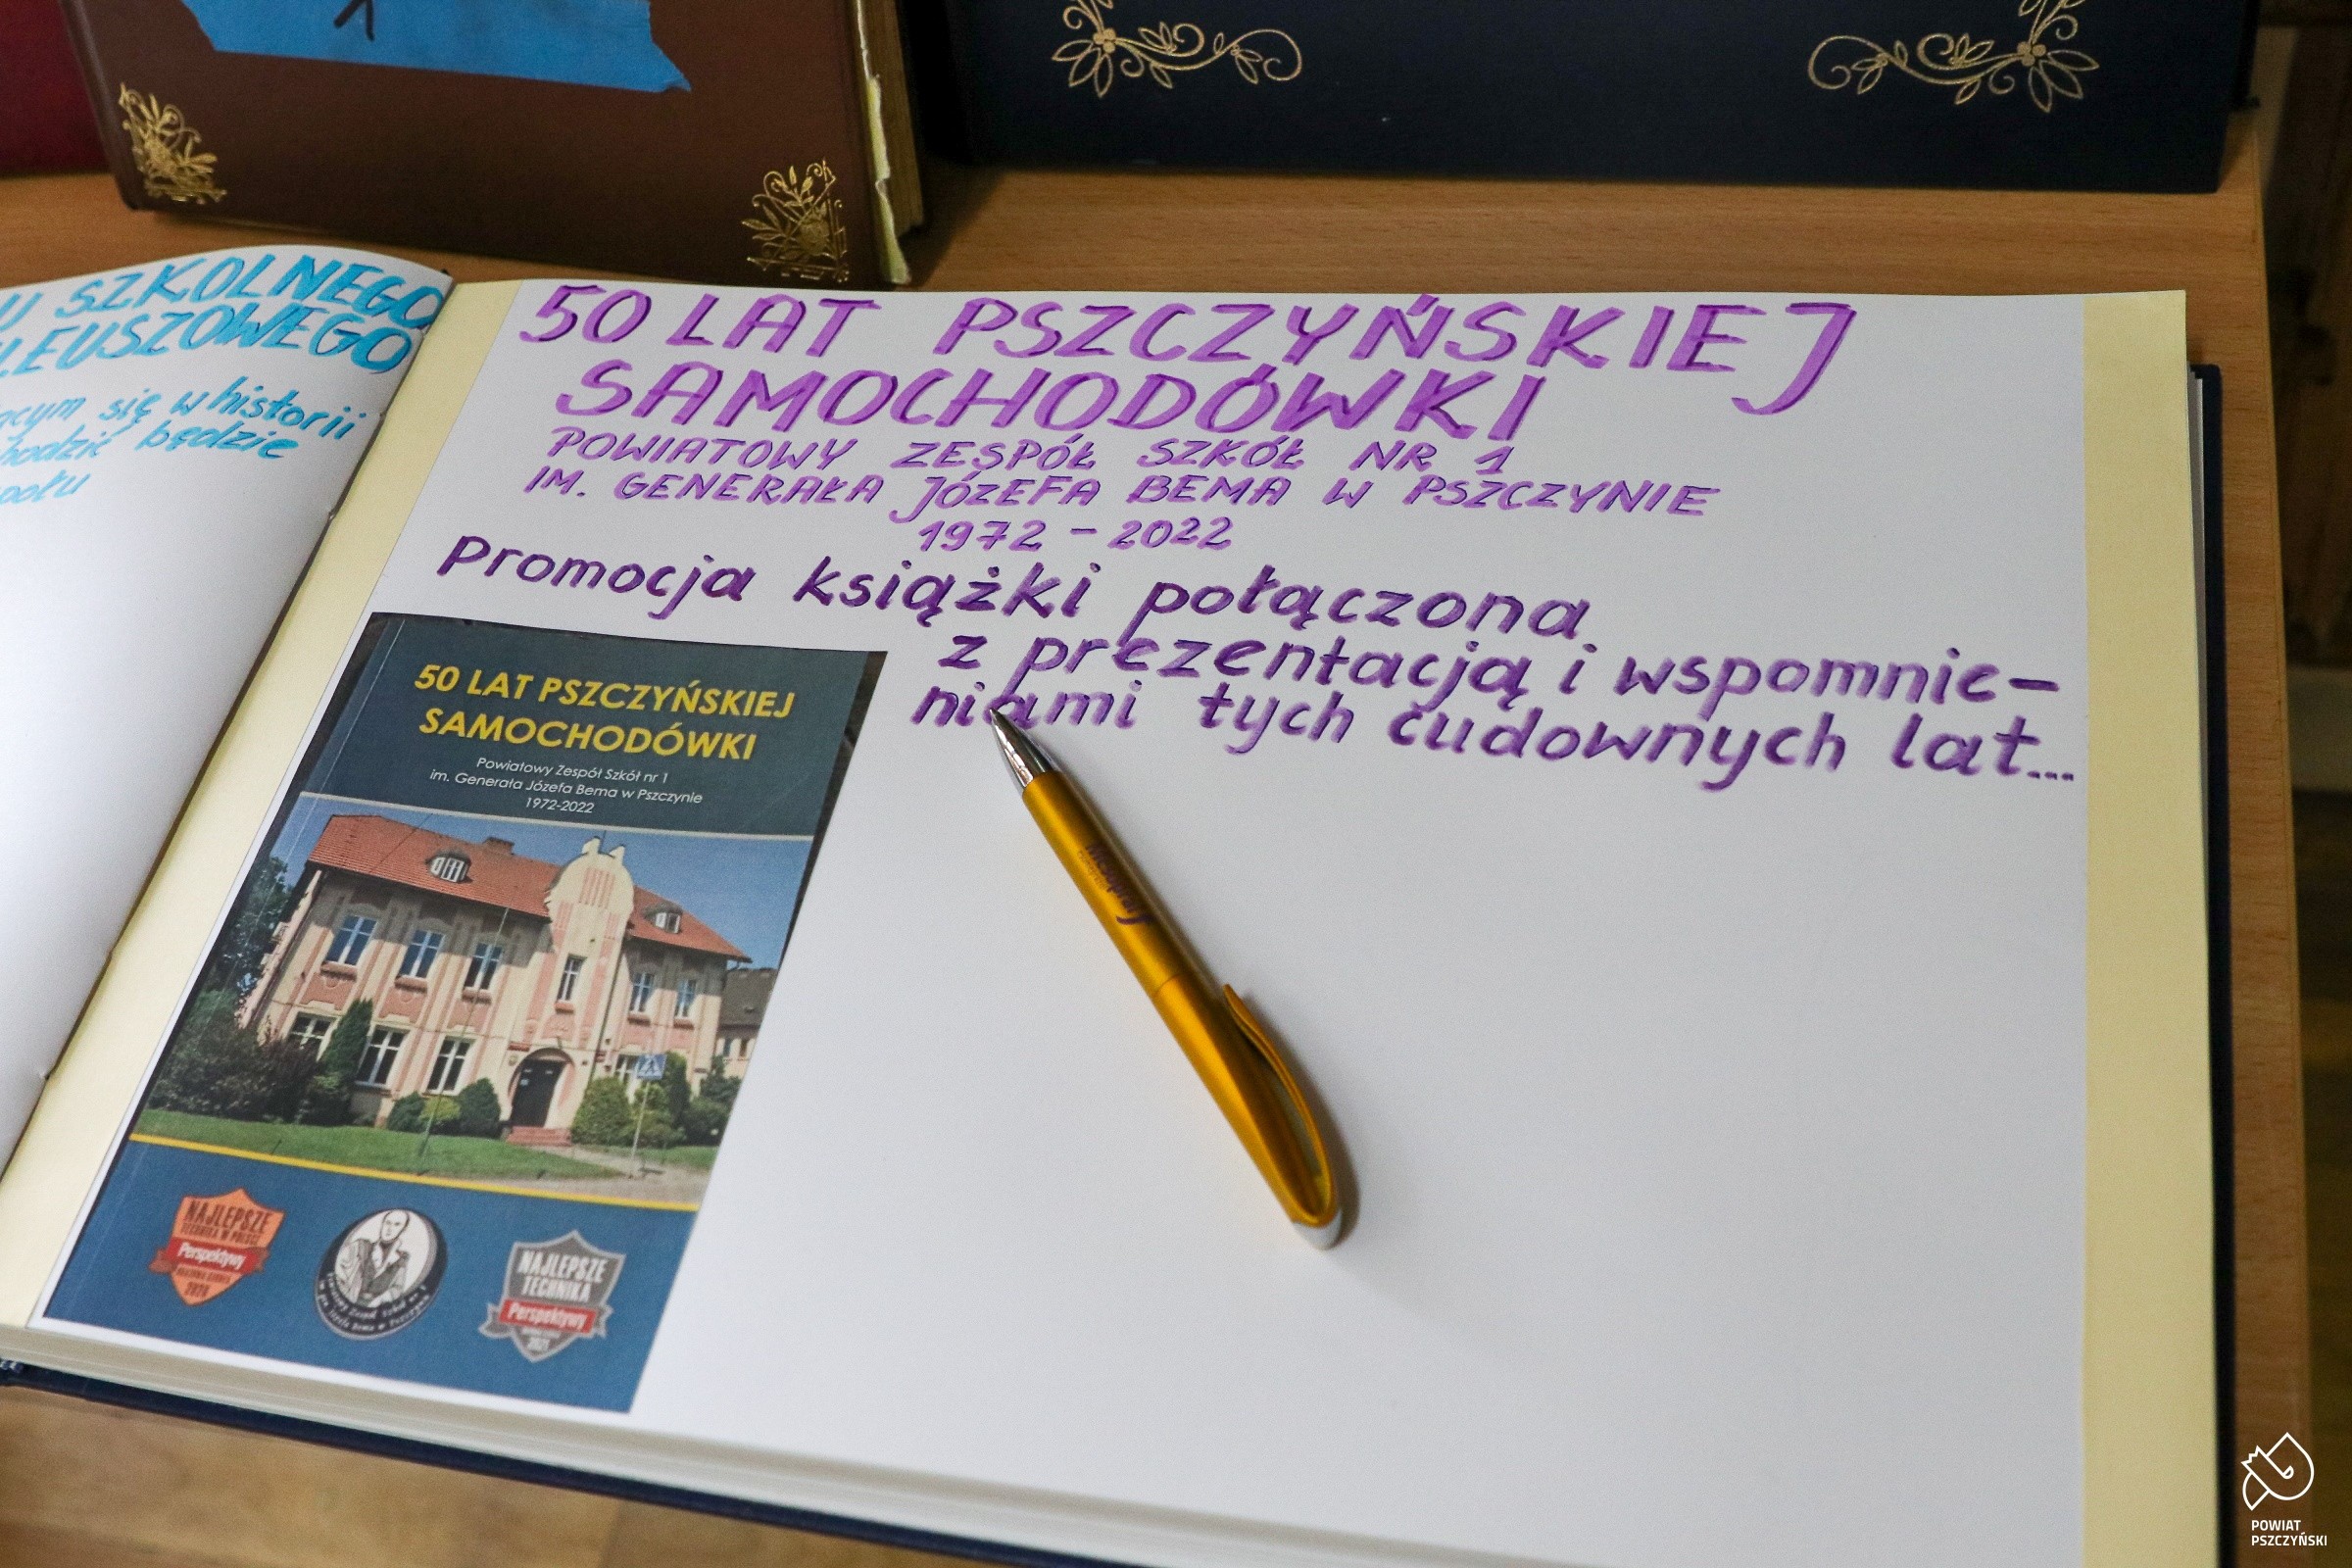 U SZKOLNEGO
LEUSZOWEGO
się w historii
będzie
50 LAT PSZCZYŃSKIEJ
SAMOCHODÓWKI
POWIATOWY ZESPÓŁ SZKÓŁ NR 1
IM. GENERAŁA JÓZEFA BEMA W PSZCZYNIE
1972 - 2022
Promocja książki połączona
z prezentacją i wspomnie-
niami tych cudownych lat...
50 LAT PSZCZYŃSKIEJ
SAMOCHODÓWKI
Powiatowy Zespół Szkół nr 1
im. Generała Józefa Bema w Pszczynie
1972-2022
NAJLEPSZE
TECHNIKA W POLSCE
Perspektywy
NAJLEPSZE
TECHNIKA
Perspektywy
POWIAT
PSZCZYŃSKI